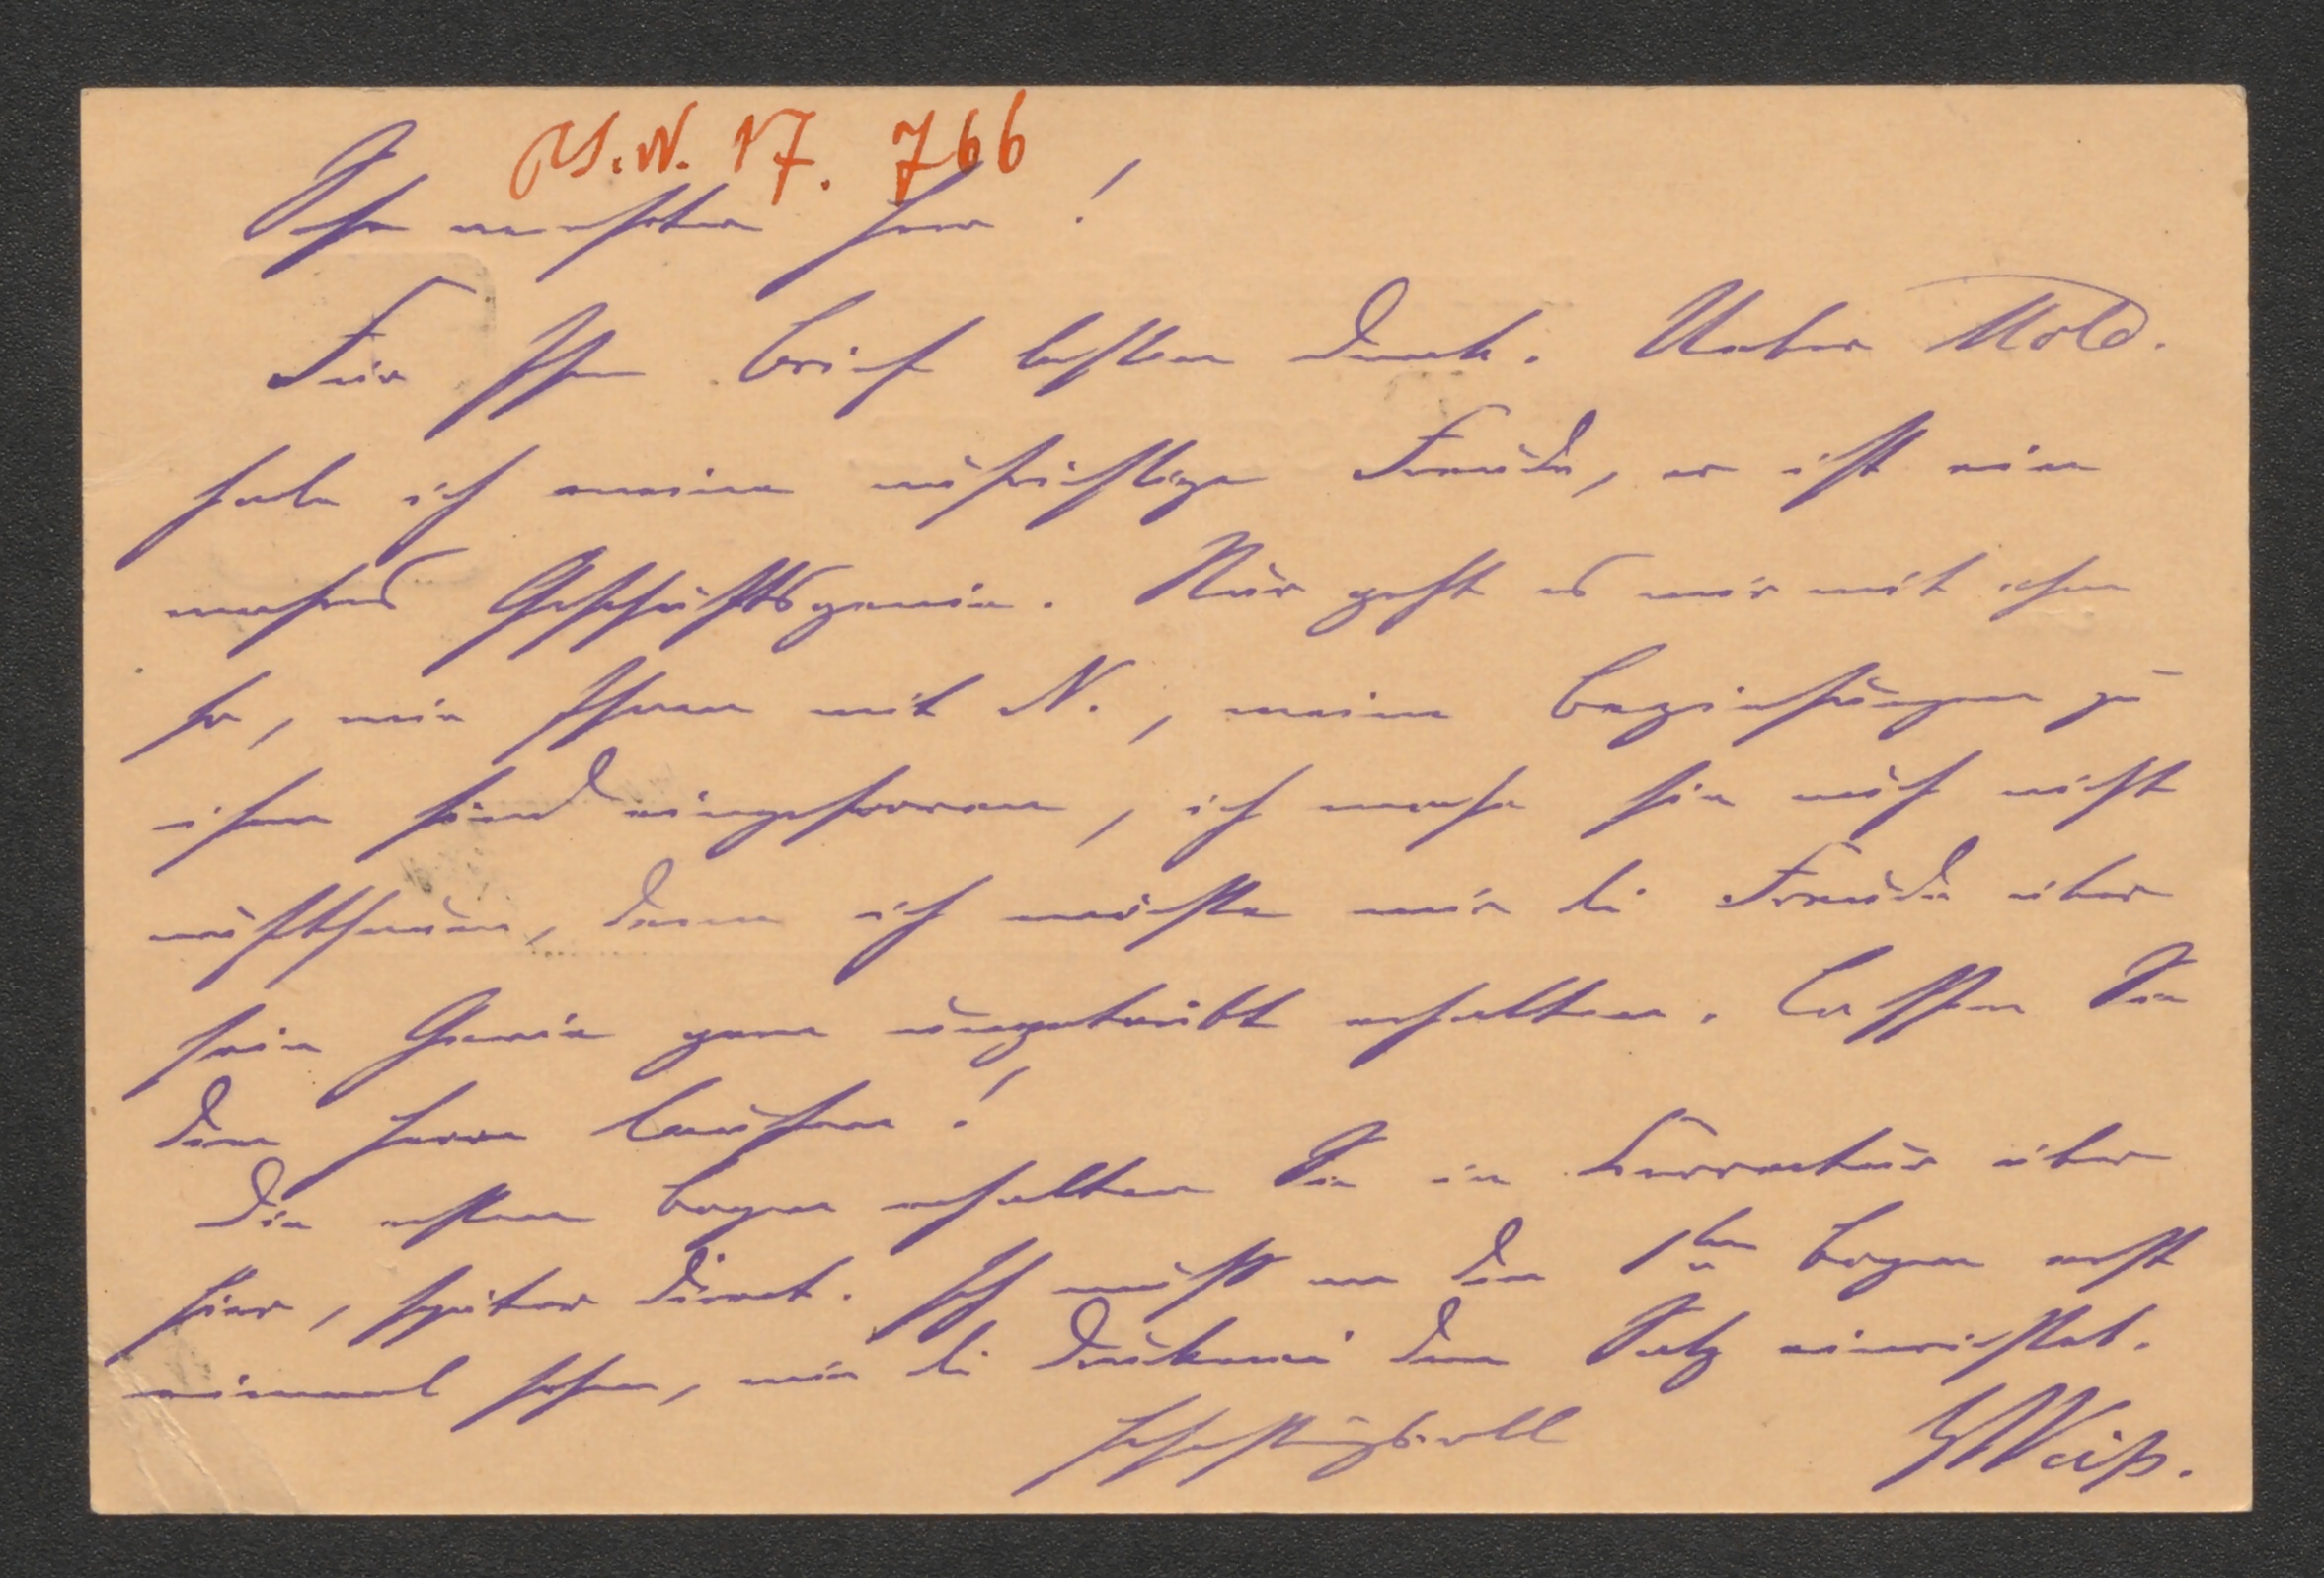 H.I.N. 17.766
Sehr verehrter Herr!
Für Ihren Brief besten Dank. Ueber Mold.
habe ich meine aufrichtige Freude, er ist ein
wahres Geschäftsgenie. Nur geht es mir mit ihm
so, wie Ihnen mit N., meine Beziehungen zu
ihm sind eingefroren, ich mache sie auch nicht
aufthauen, denn ich möchte mir die Freude über
sein Genie gern ungetrübt erhalten. Lassen Sie
den Herrn laufen!
Die ersten Bogen erhalten Sie in Correctur über
hier, später direct. Ich muß an den 1ten Bogen erst
einmal sehen, wie die Druckerei den Satz einrichtet.
Hochachtungsvoll Weiß.